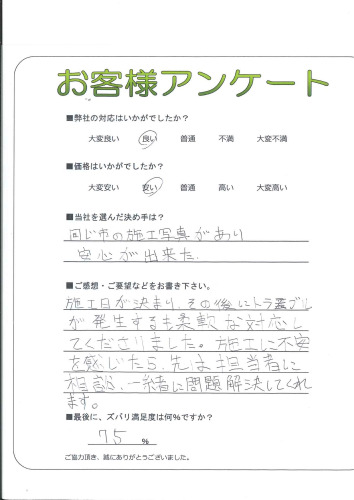 お客様アンケート
■弊社の対応はいかがでしたか？
大変良い　良い　普通　不満　大変不満
■価格はいかがでしたか？
大変安い　安い　普通　高い　大変高い
■当社を選んだ決め手は？
同じ市の施工写真があり
安心が出来た.
■ご感想・ご要望などをお書き下さい。
施工日が決まり、その後にトラブル
が発生するも柔軟な対応し
てくださりました。施工に不安
を感じたら、先ずは担当者に
相談、一緒に問題解決してくれ
ます。
■最後に、ズバリ満足度は何％ですか？
75 ％
ご協力頂き、誠にありがとうございました。